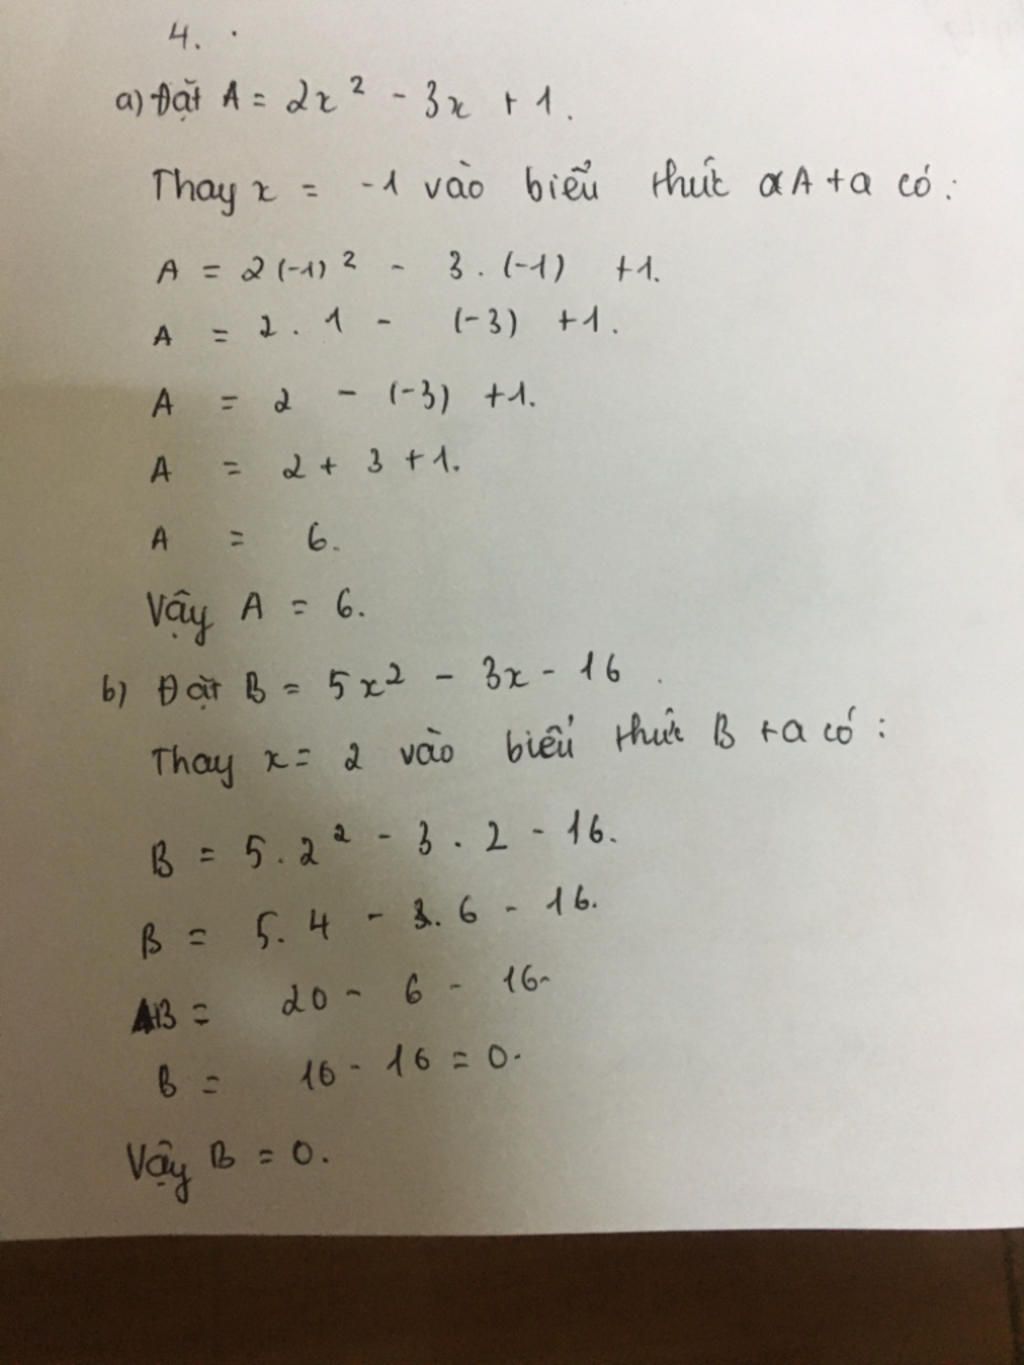 4.
a) Đặt A = 2x² - 3x + 1.
Thay x = -1 vào biểu thức A + a có:
A = 2(-1)² - 3. (-1) +1.
A = 2. 1 - (-3) +1.
A = 2 - (-3) +1.
A = 2 + 3 +1.
A = 6.
Vậy A = 6.
b) Đặt B = 5x² - 3x - 16.
Thay x = 2 vào biểu thức B + a có:
B = 5. 2² - 3. 2 - 16.
B = 5. 4 - 3. 6 - 16.
B = 20 - 6 - 16.
B = 16 - 16 = 0.
Vậy B = 0.